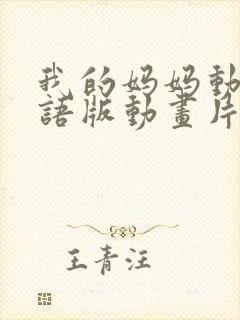 我的妈妈动
語版動畫片
王青汪